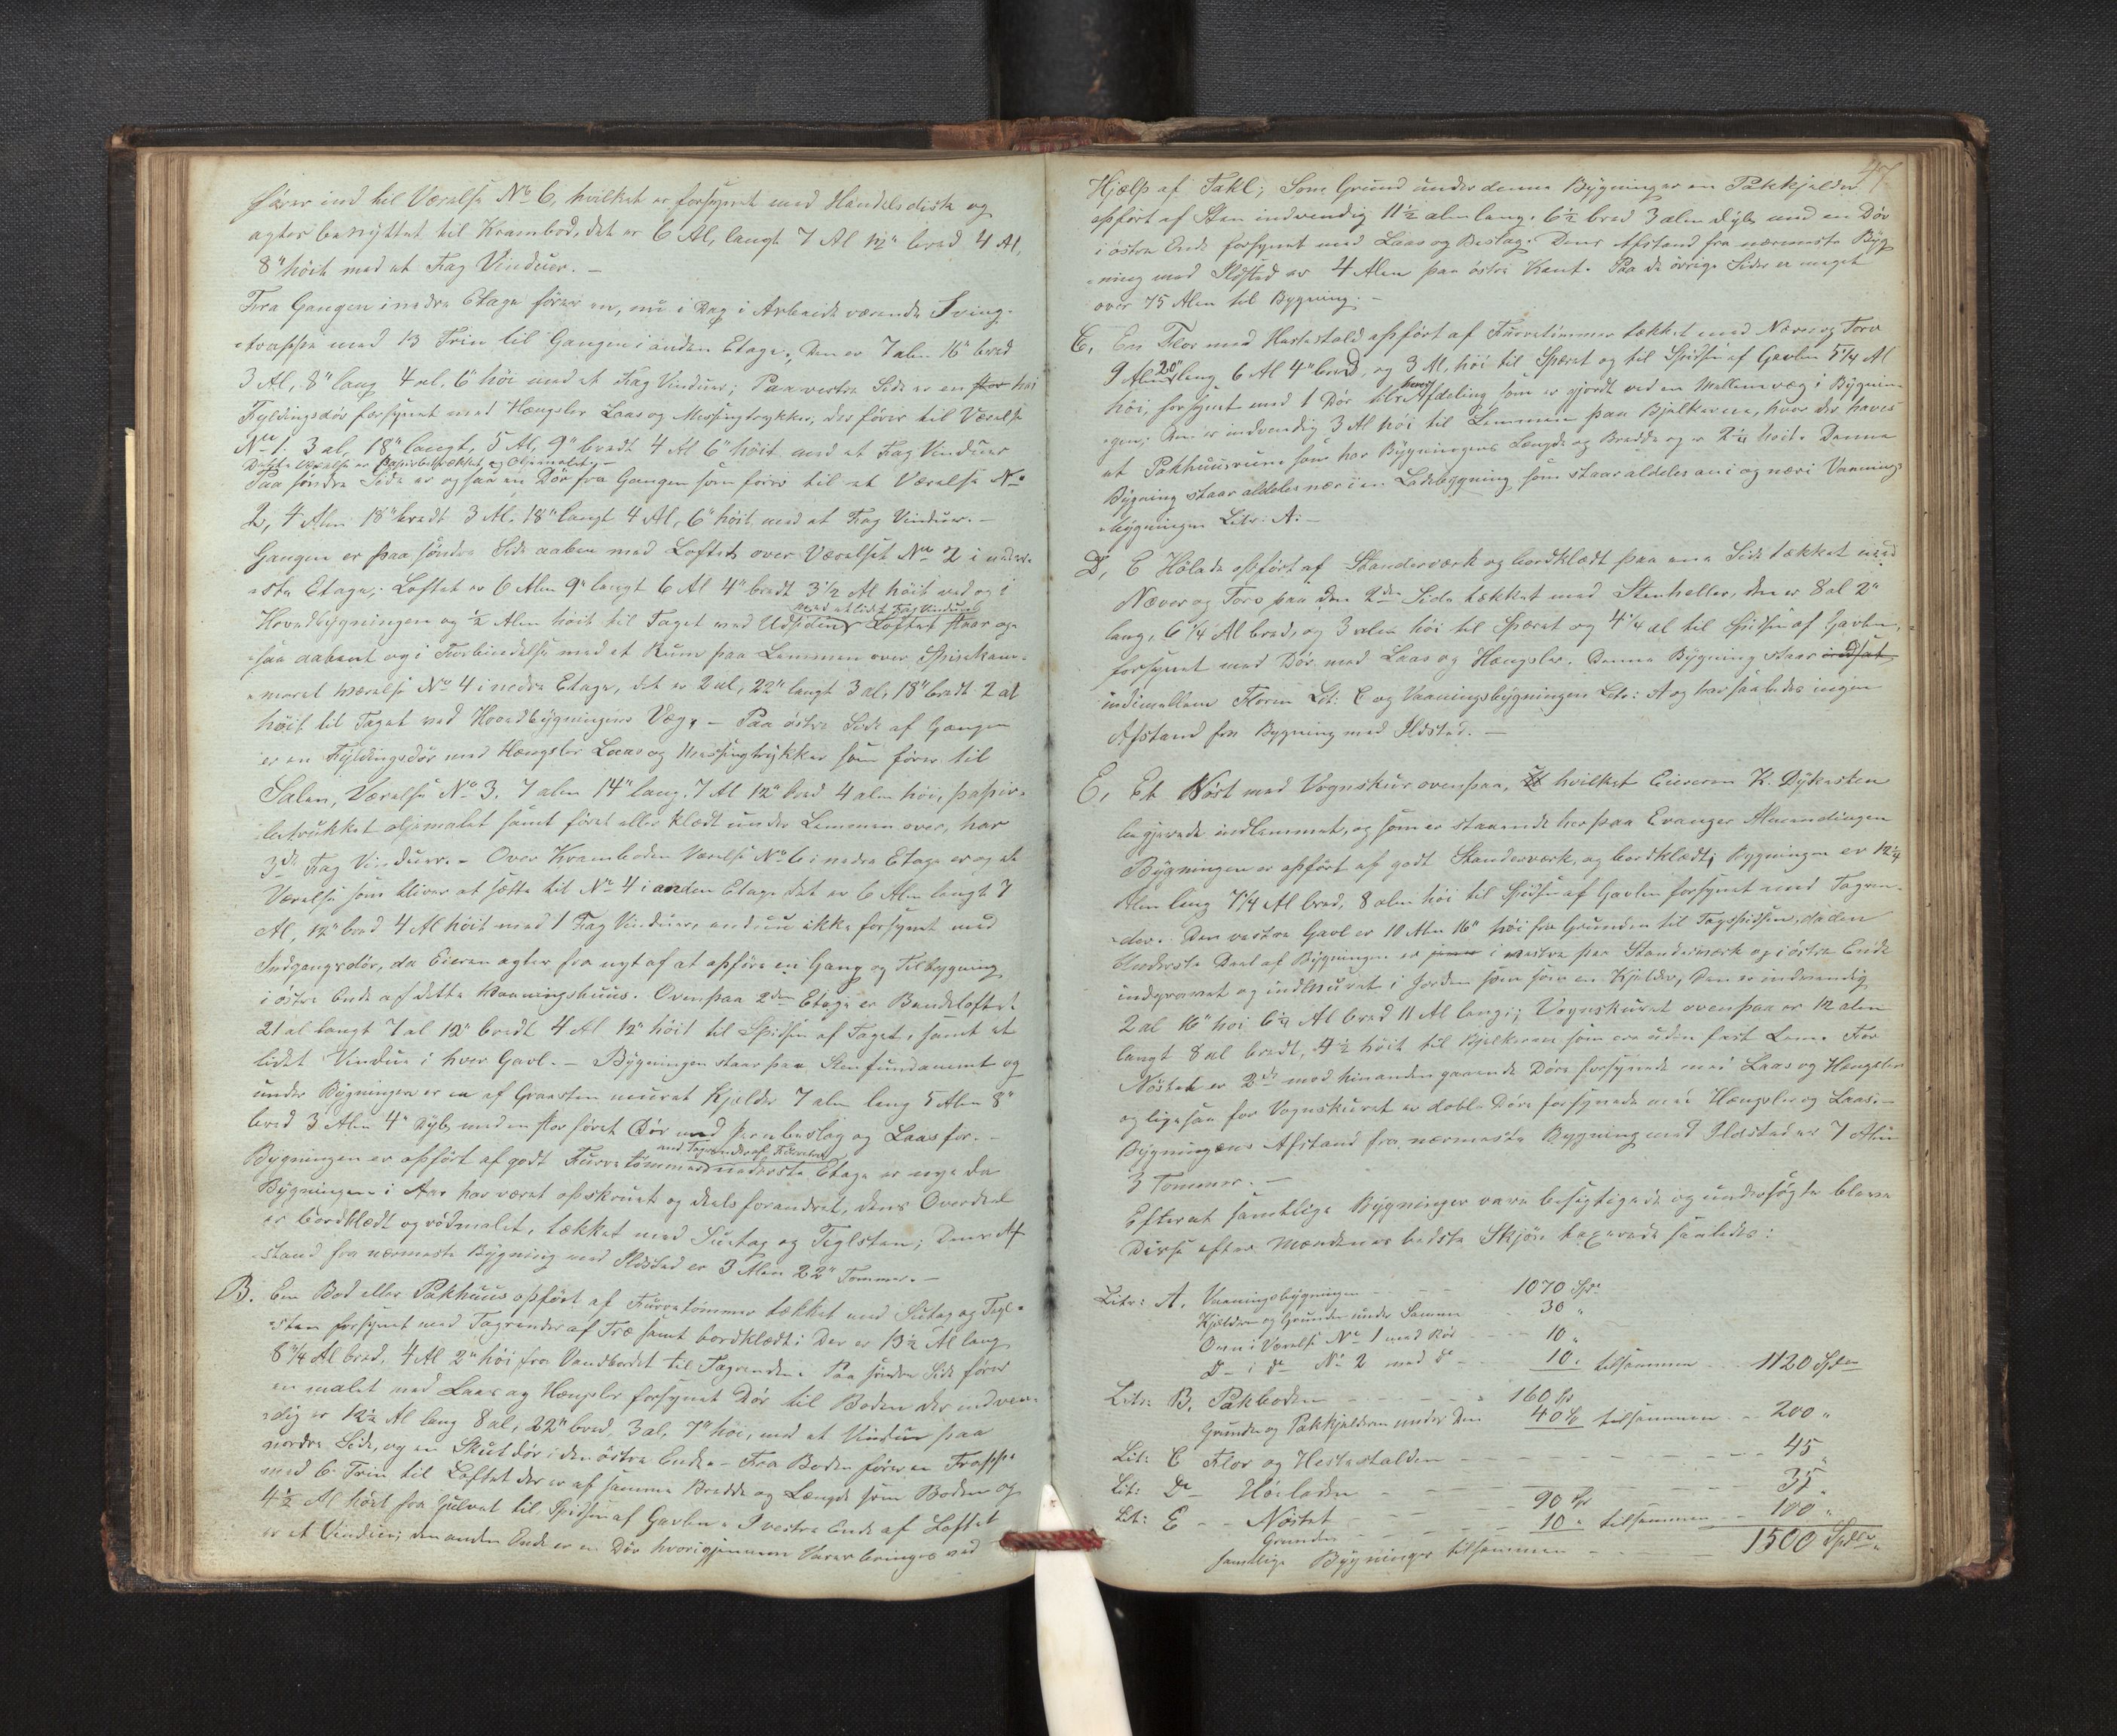 fører ind til Værelse No 6, hvilket er forsynet med Handelsdisk og
agtes benyttet til Krambod, det er 6 Al, langt 7 Al 12" bred 4 Al,
8" höit med et Fag Vinduer. –
Fra Gangen i nedre Etage förer en, nu i Dag i Arbeide værende Sving-
trappe med 13 Trin til Gangen i anden Etage; Den er 7 alen 16" bred
3 Al, 8" lang 4 al, 6" höi med et Fag Vinduer; Paa vestre Side er en höi
Fyldingsdör forsynet med Hængsler Laas og Messingtrykker, der förer til Værelse
No 1. 3 al, 18" langt, 5 Al, 9" bredt 4 Al 6" höit med et Fag Vinduer
Dette Værelse er Papirbetrækket og Oljemalet. –
Paa söndre Side er ogsaa en Dör fra Gangen som förer til et Værelse No
2, 4 Alen 18" bredt 3 Al. 18" langt 4 Al, 6" höit med et Fag Vinduer. –
Gangen er paa söndre Side aaben med Loftet over Værelset No 2 i neder-
ste Etage; Loftet er 6 Alen 9" langt 6 Al 4" bredt 3 1/2 Al höit ved og i
Hovedbygningen og 1/2 Alen höit til Taget ved Udsiden, med et lidet Fag Vinduer Loftet staar og-
saa aabent og i Forbindelse med et Rum paa Lemmen over Spiskam-
meret Værelse No 4 i nedre Etage, det er 2 al, 22" langt 3 al, 18" bredt 2 al
höit til Taget ved Hovedbygningens Væg. – Paa östre Side af Gangen
er en Fyldingsdör med Hængsler Laas og Messingtrykker som förer til
Salen, Værelse No 3. 7 alen 14" lang, 7 Al 12" bred 4 alen höi, papir-
betrukket oljemalet samt foret eller klædt under Lemmen over, har
3de Fag Vinduer. – Over Kramboden Værelse No 6 i nedre Etage er og et
Værelse som bliver at sætte til No 4 i anden Etage det er 6 Alen langt 7
Al, 12" bred 4 Al höit med 1 Fag Vinduer, endnu ikke forsynt med
Indgangsdör, da Eieren agter fra nyt af at opföre en Gang og Tilbygning
i östre Ende af dette Vaaningshuus. Ovenpaa 2den Etage er Bandeloftet
21 al langt 7 al 12" bredt 4 Al 12" höit til Spidsen af Taget, samt et
lidet Vindue i hver Gavl. – Bygningen staar paa Steenfundament og
under Bygningen er en af Graasten muret Kjælder 7 alen lang 5 Alen 8"
bred 3 Alen 4" dyb, med en stor foret Dör med Jernbeslag og Laas for. –
Bygningen er opfört af godt Furretömmer nederste Etage er nye da
Bygningen i Aar har været opskruet og deels forandret, dens Overdeel
er bordklædt og rödmalet, tækket med Sutag og Teglsten; Dens Af
stand fra nærmeste Bygning med Ildsted er 3 Alen 22" Tommer. –
B. Een Bod eller Pakhuus opfört af Furretömmer tækket med Sutag og Tegl-
sten forsynet med Tagrender af Træ samt bordklædt: Den er 13 1/2 Al lang
8 3/4 Al bred, 4 Al 2" höi fra Vandbordet til Tagrenden. Paa söndre Side förer
en malet med Laas og Hængsler forsynet Dör til Boden der indven-
dig er 12 1/2 Al lang 8 al, 22" bred, 3 al, 7" höi, med et Vindue paa
nordre Side, og en Skutdör i den östre Ende. – Fra Boden förer en Trappe
med 6 Trin til Loftet der er af samme Bredde og Længde som Boden og
4 1/2 Al höit fra Gulvet til Spidsen af Gavlen. I vestre Ende af Loftet
er et Vindue; den anden Ende er en Dör hvorigjennem Varer bringes ved
47
Hjælp af Takl; Som Grund under denne Bygning er en Pakkjelder
opfört af Sten indvendig 11 1/2 alen lang, 6 1/2 bred 3 alen dyb med en Dör
i östre Ende forsynet med Laas og Beslag. Dens Afstand fra nærmeste Byg
ning med Ildsted er 4 Alen paa östre Kant. Paa de övrige Sider er meget
over 75 Alen til Bygning. –
C, En Flor med Hestestald opfört af Furretömmer tækket med Næver og Torv
9 Alen 20" lang 6 Al 4" bred, og 3 Al, höi til Spæret og til Spidsen af Gavlen 5 1/4 Al
höi, forsynet med 1 Dör til hver Afdeling som er gjordt ved en Mellemvæg i Bygnin-
gen; Den er indvendig 3 Al höi til Lemmen paa Bjelkerne, hvor der haves
et Pakhuusrum som har Bygningens Længde og Bredde og er 2 1/4 höit. Denne
Bygning staar aldeles nær i en Ladebygning som staar aldeles an i og nær i Vaanings
bygningen Litr: A. –
D, E Hölade opfört af Standerværk og bordklædt paa ene Side tækket med
Næver og Torv paa den 2den Side tækket med Stenheller, den er 8 al 2"
lang, 6 1/4 Al bred, og 3 alen höi til Spæret og 4 1/4 al til Spidsen af Gavlen,
forsynet med Dör med Laas og Hængsler. Denne Bygning staar indsat
indimellem Floren Lit: C og Vaaningsbygningen Litr: A og har saaledes ingen
Afstand fra Bygning med Ildsted. –
E, Et Nöst med Vognskur ovenpaa, hvilket Eieren K. Dykesten
begjerede indlemmet, og som er staaende her paa Evanger Almendingen
Bygningen er opfört af godt Standerværk, og bordklædt; Bygningen er 12 1/4
Alen lang 7 1/4 Al bred, 8 alen höi til Spidsen af Gavlen forsynet med Tagren-
der. Den vestre Gavl er 10 Alen 16" höi fra Grunden til Tagspidsen, da den
Underste Deel af Bygningen er i vestre paa Standerværk og i östre Ende
indgravet og indmuret i Jorden som som en Kjelder, Den er indvendig
2 al 16" höi 6 1/2 Al bred 11 Al lang; Vognskuret ovenpaa er 12 alen
langt 8 al bredt, 4 1/2 höit til Bjelkerne som ere uden fast Lem. For
Nöstet er 2de mod hinanden gaaende Döre forsynede med Laas og Hængsler
og ligesaa for Vognskuret er doble Döre forsynede med Hængsler og Laas. –
Bygningens Afstand fra nærmeste Bygning med Ildsted er 7 Alen
3 Tommer. –
Efterat samtlige Bygninger vare besigtigede og undersögte bleve
Disse efter Mændenes bedste Skjön taxerede saaledes:
Litr: A. Vaaningsbygningen - - - 1070 Spd
Kjælderen og Grunden under Samme 30 "
Ovn i Værelse No 1 med Rör - - - 10 "
Do i do No 2 med do - - 10 " tilsammen - - 1120 Spd
Litr: B. Pakboden - - - - 160 Sp
Grunden og Pakkjelderen under Den 40 Sp tilsammen - - 200 "
Lit: C Flor og Hestestalden - - - - - 45 "
Lit: D Höeladen - - - - - 35 "
Lit: E - - Nöstet - - - 90 Sp
Grunden - - - 10 " tilsammen - - 100 "
samtlige Bygninger tilsammen - - - 1500 Spd